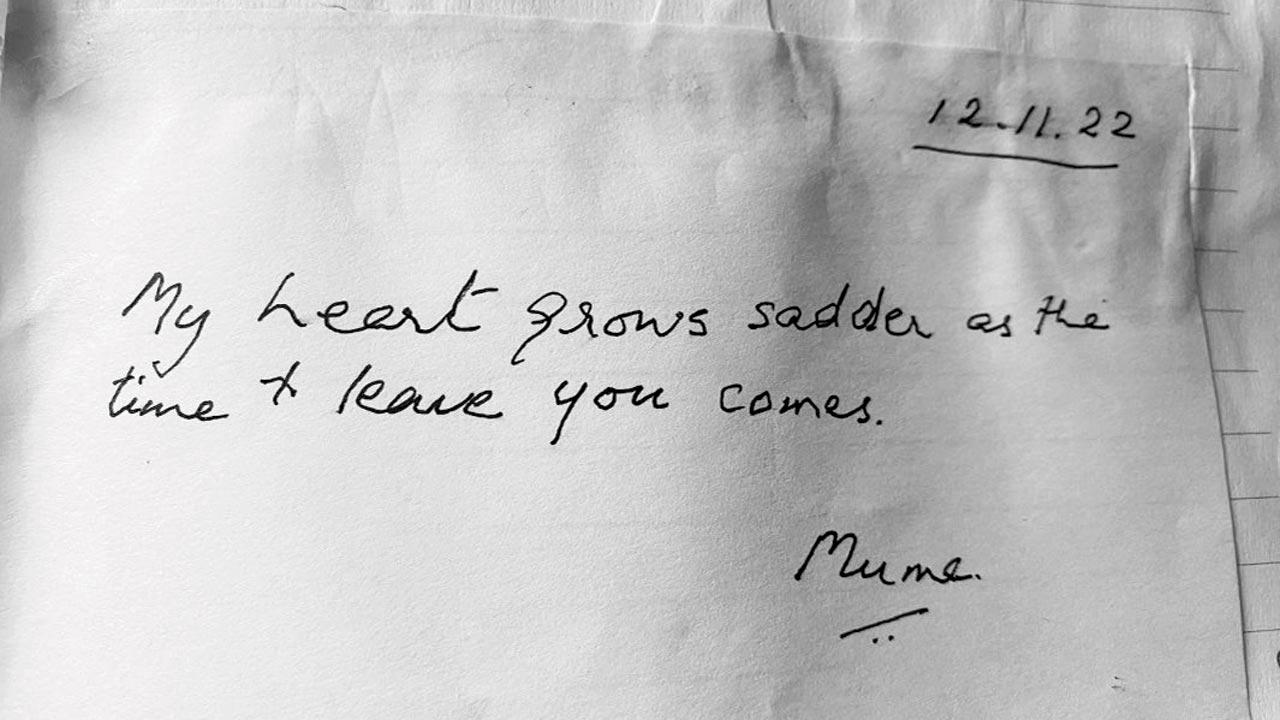 12.11.22
My heart grows sadder as the
time to leave you comes.
Mume.